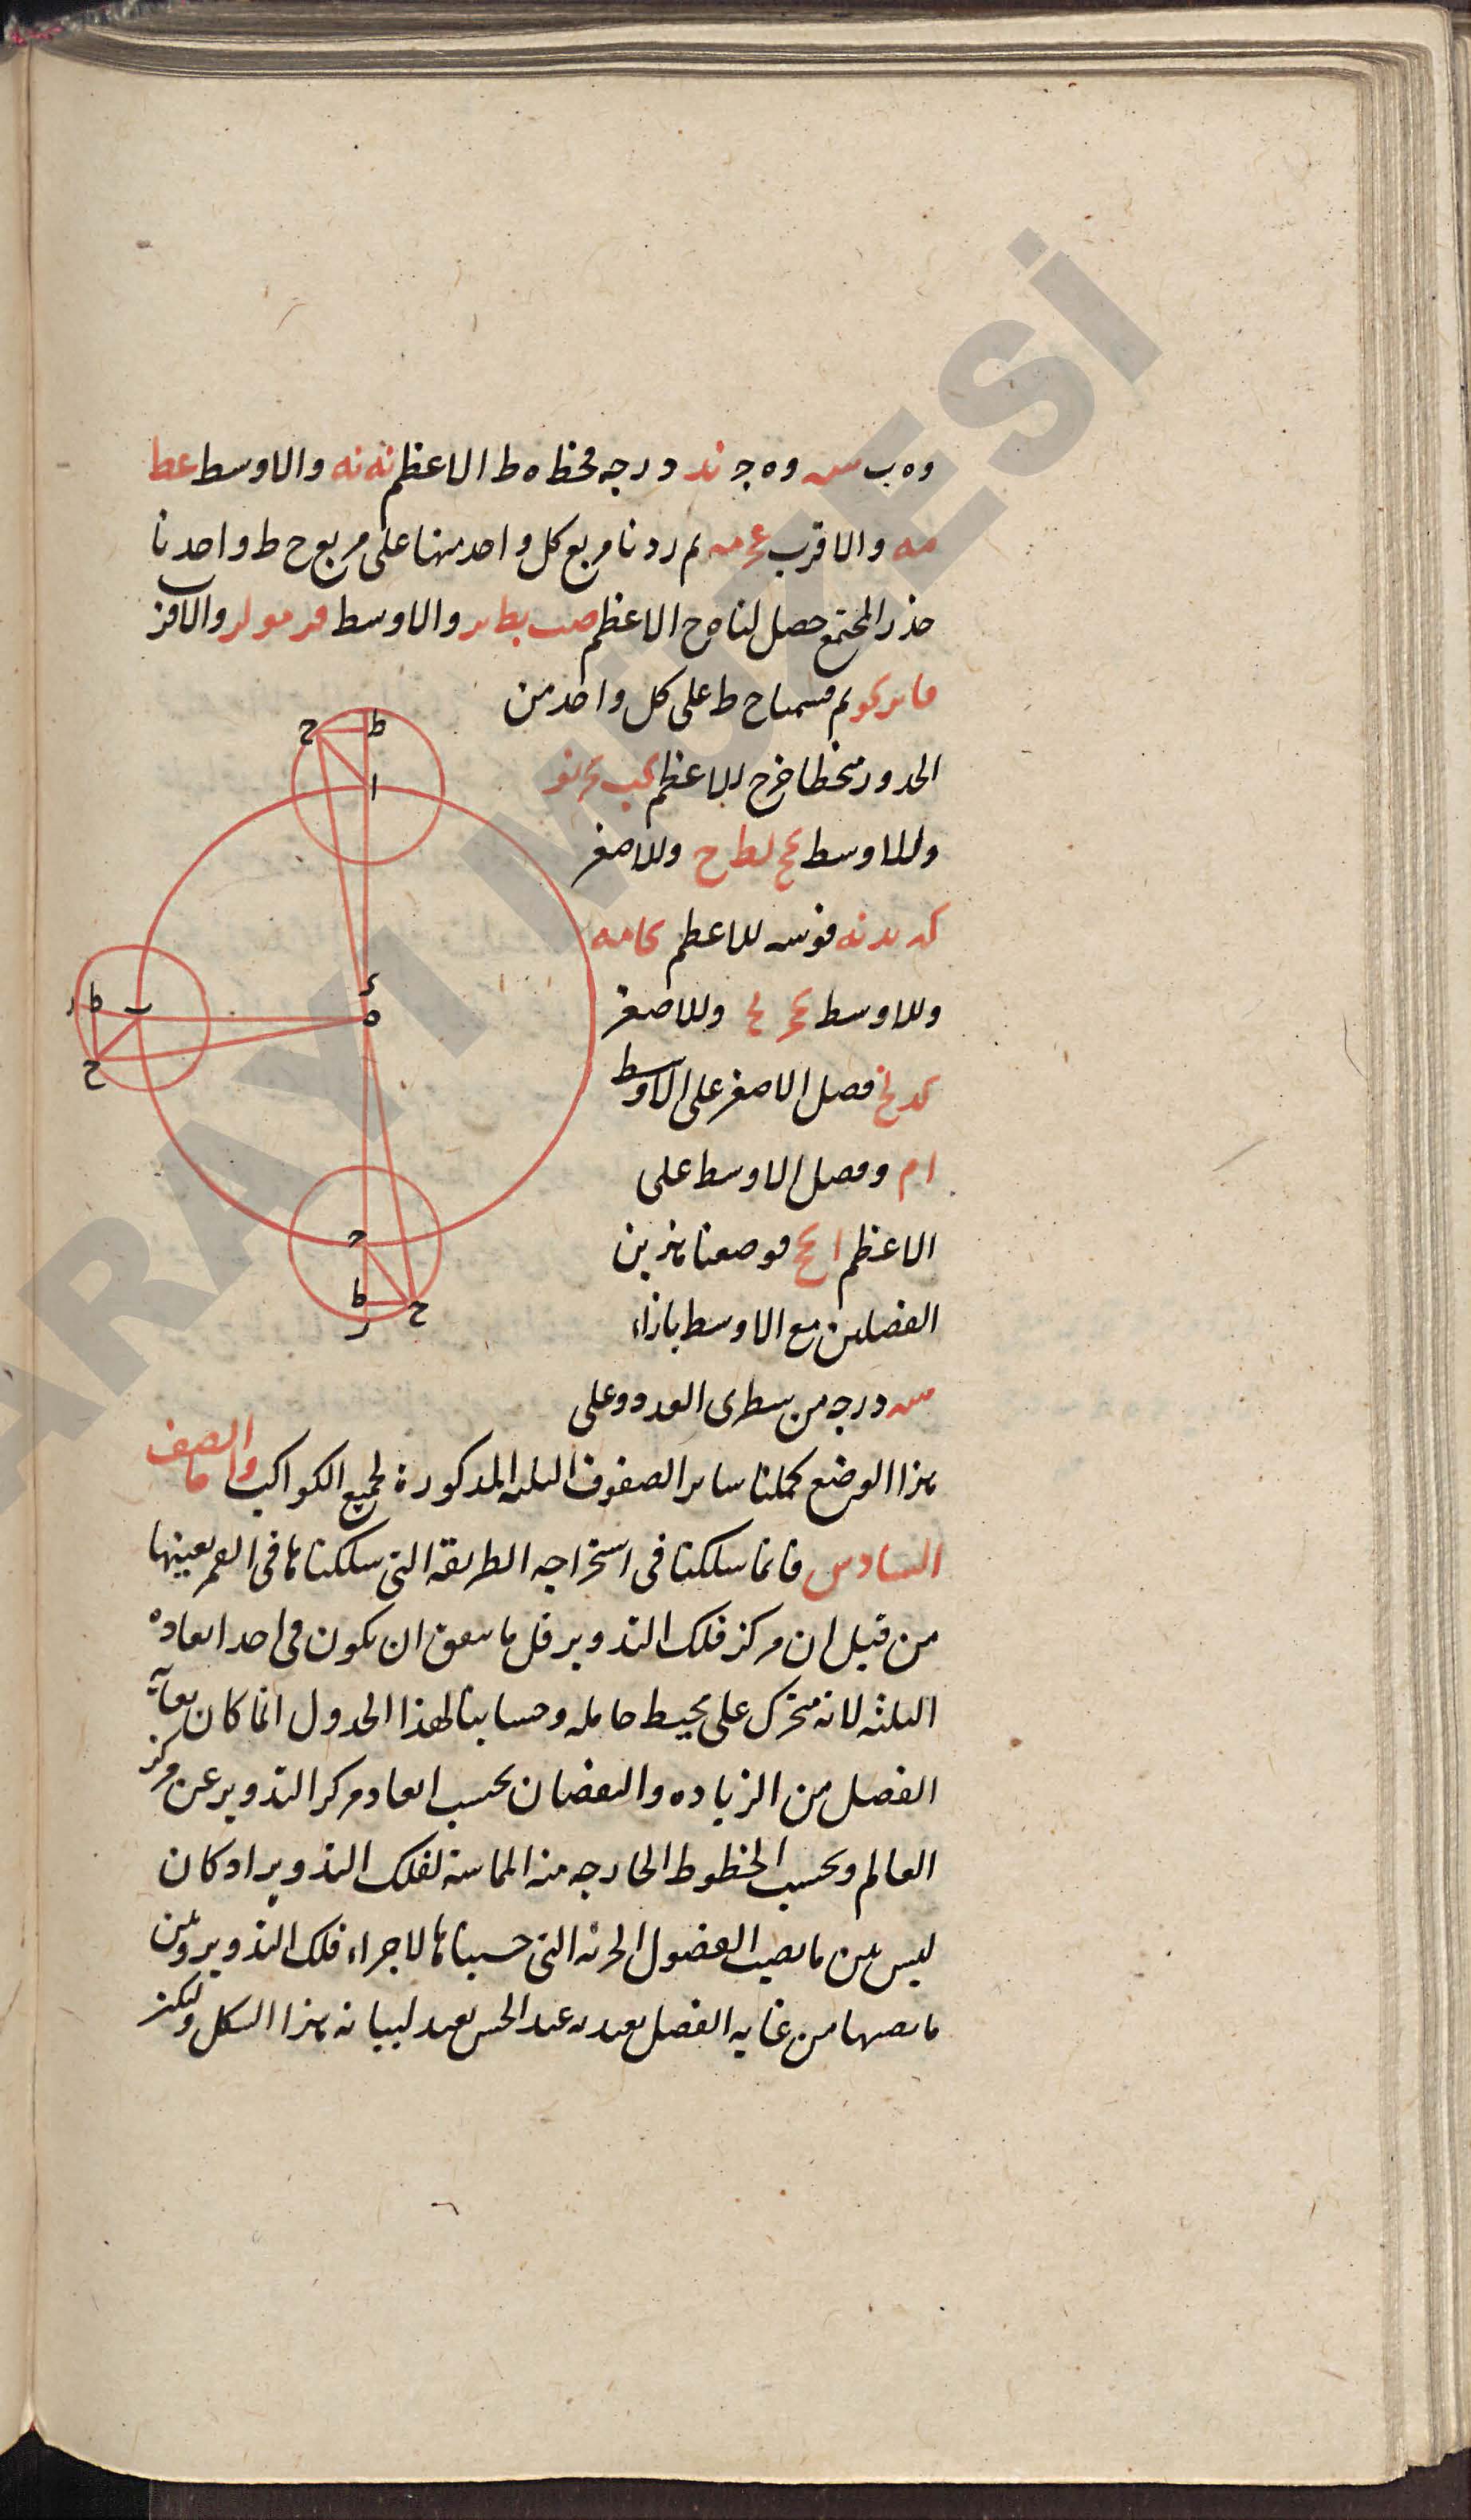 وه ب س وه ج ند درجه فخط ه ط الاعظم نه نه والاوسط عط
مه والاقرب عح مه ثم زدنا مربع كل واحد منها على مربع ح ط واخذنا
جذر المجتمع حصل لنا ه ح الاعظم صب نط والاوسط فد مو لو والاقرب
ثم قسمنا ح ط على كل واحد من
الحدود منحطا خرج للاعظم كب
وللاوسط كح لط ح وللاصغر
كد ند نه قوسه للاعظم كا مه
وللاوسط كح كح وللاصغر
كد لح فضل الاصغر على الاوسط
ا م وفضل الاوسط على
الاعظم ا كح فوضعنا هذين
الفضلين مع الاوسط بازاء
س درجه من سطرى العدد وعلى
هذا الوضع كملنا ساير الصفوف الثلثه المذكورة لجميع الكواكب واما الصف
السادس فانما سلكنا فى استخراجه الطريقة التى سلكناها فى القمر بعينها
من قبل ان مركز فلك التدوير قل ما يتفق ان يكون فى احد ابعاده
الثلثه لانه متحرك على محيط حامله وحسابنا لهذا الجدول انما كان بغاية
الفضل من الزياده والنقصان بحسب ابعاد مركز التدوير عن مركز
العالم وبحسب الخطوط الخارجه منه المماسة لفلك التدوير اذ كان
ليس بين ما يصيب الفضول الجزئه التى حسبناها لاجزاء فلك التدوير وبين
ما يصيبها من غايه الفضل بعد به عند الحس نعيد لبيانه هذا الشكل وليكن
ح ط
ا
ء
ه
ر ط ب
ح
ج
ط ح
ر
SARAYI MÜZESİ